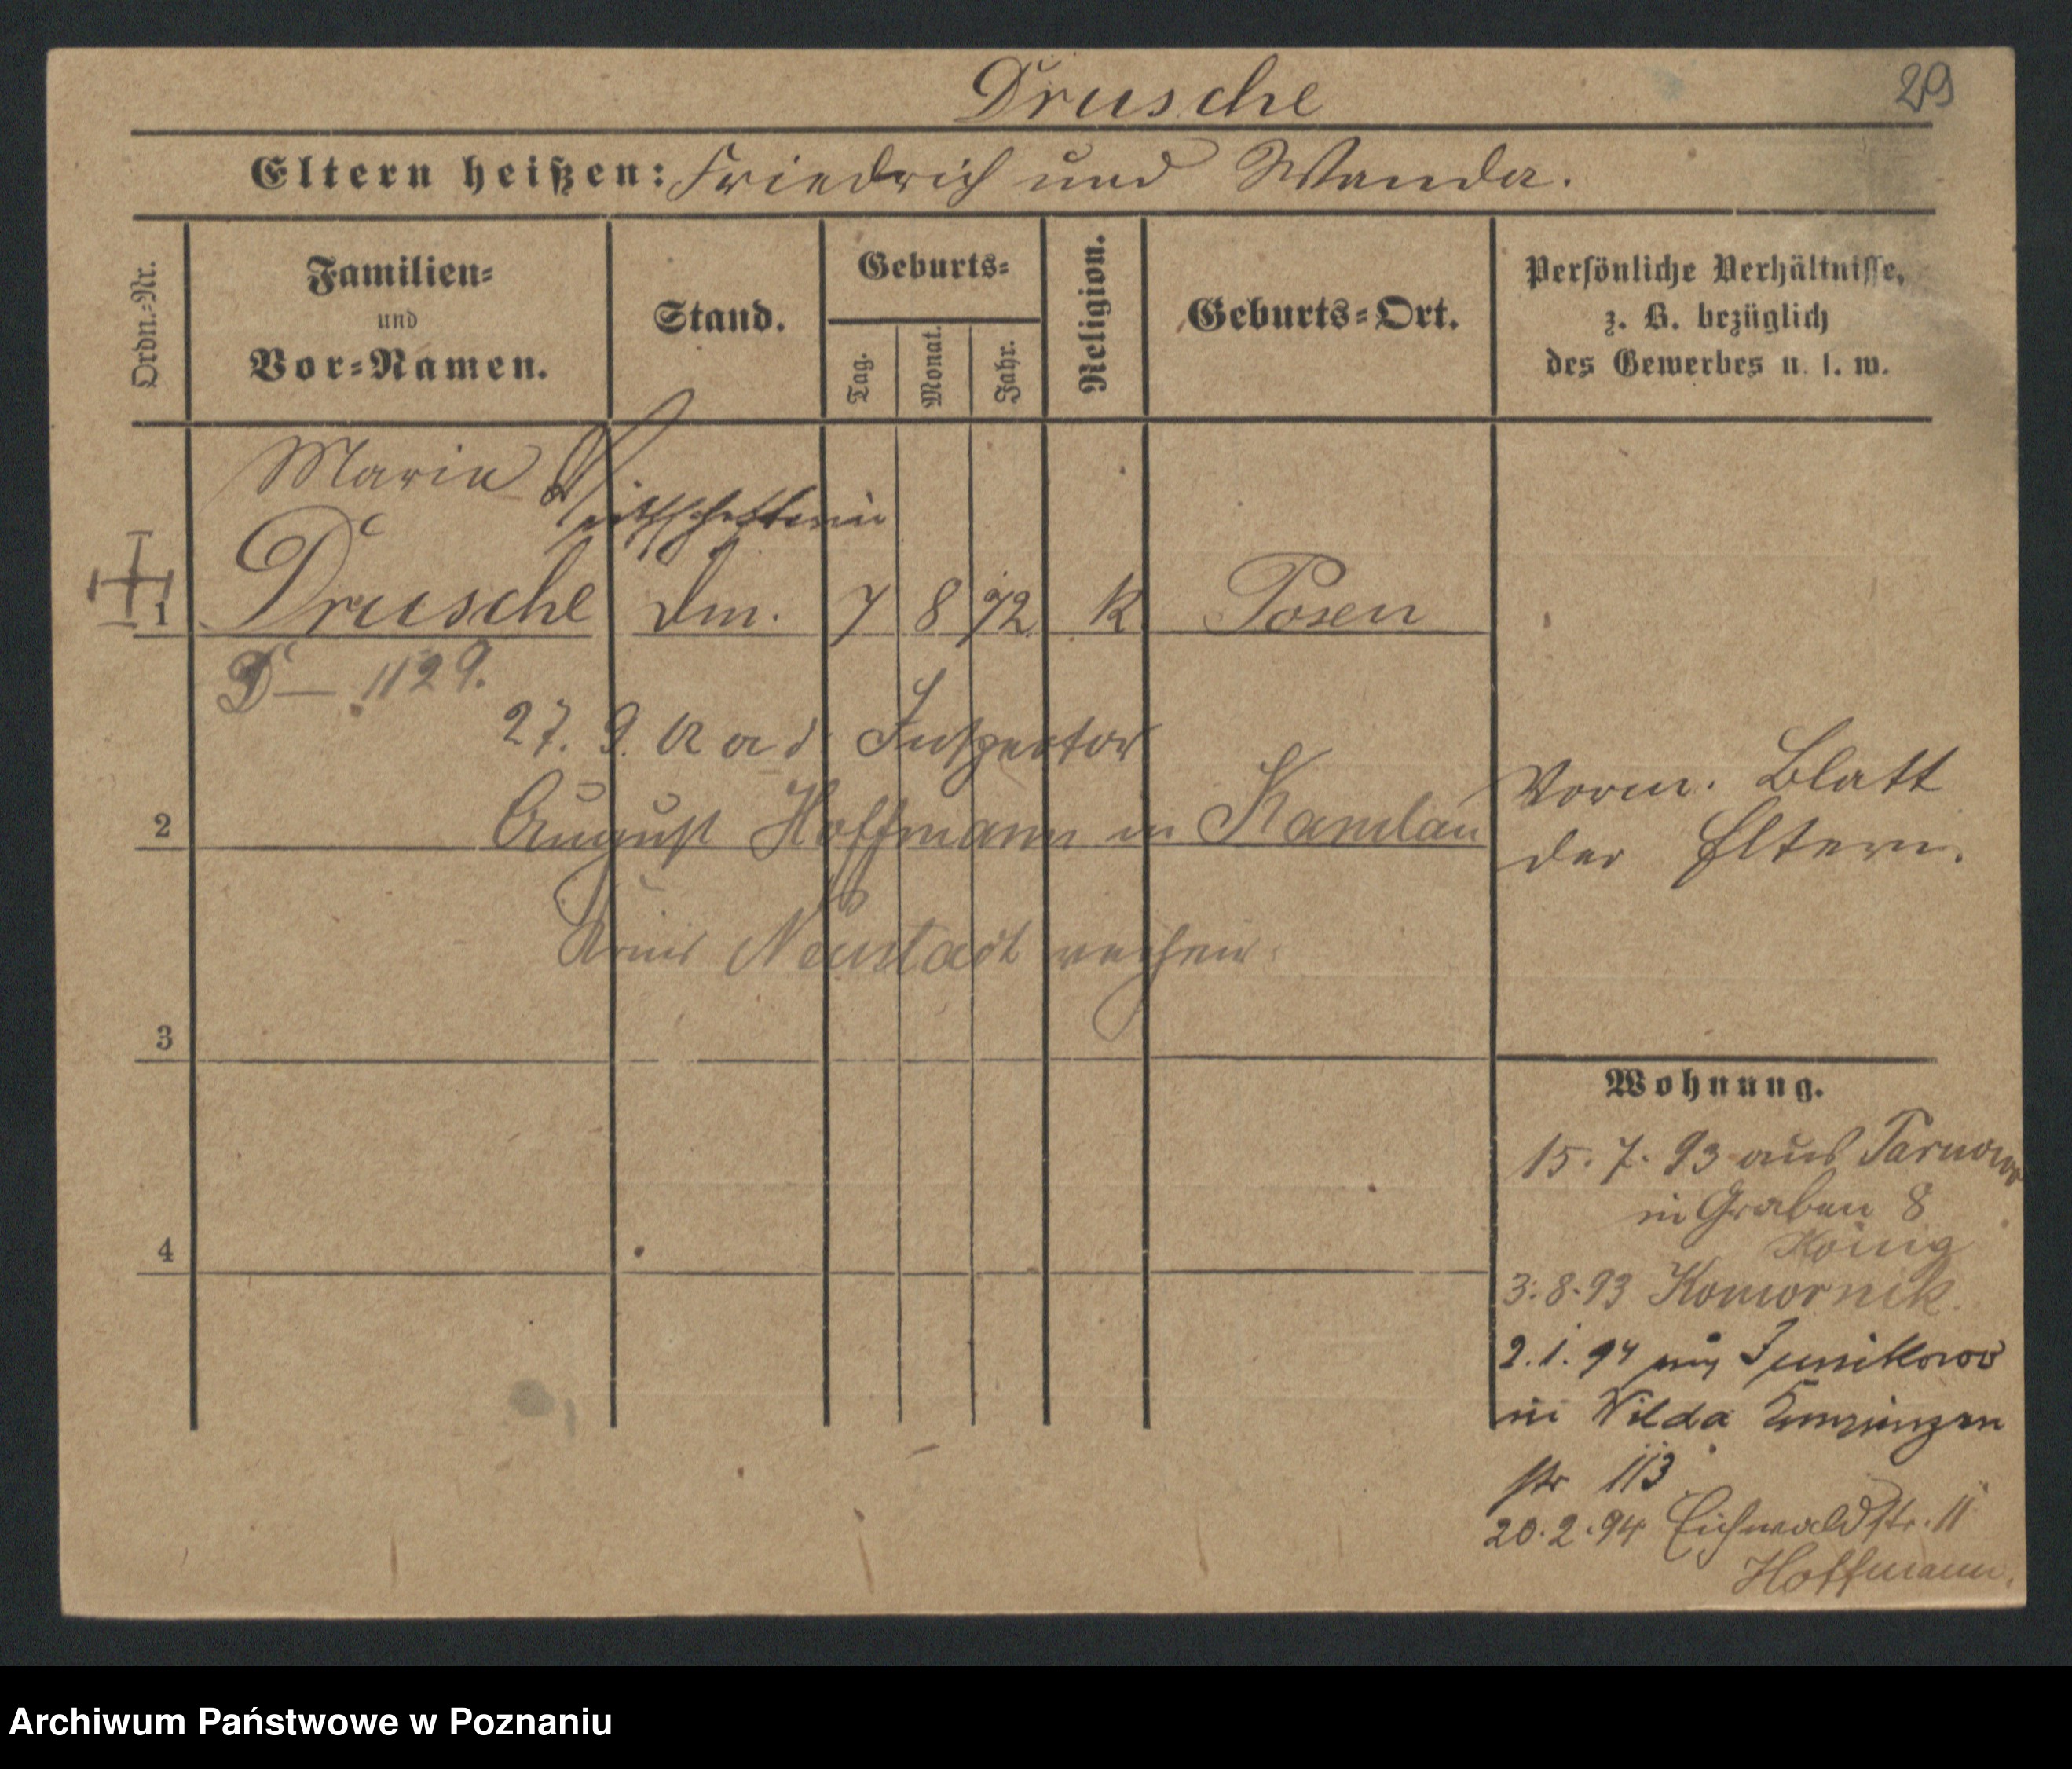 Drusche
29
Eltern heißen: Friedrich und Wanda.
Ordn.-Nr.
Familien-
und
Vor-Namen.
Stand.
Geburts-
Tag.
Monat.
Jahr.
Religion.
Geburts-Ort.
Persönliche Verhältnisse,
z. B. bezüglich
des Gewerbes u. s. w.
Marie Wirthschafterin
1 Drusche Dm. 7 8 72 K Posen
D — 1129.
27. 9. Inspector
2 August Hoffmann in Kamlau
Kreis Neustadt
Vorm. Blatt
der Eltern.
3
4
Wohnung.
15. 7. 93 aus Tarnowo
in Graben 8
König
3. 8. 93 Komornik.
2. 1. 94 Junikowo
in Wilda Kronprinzen
str 113
20. 2. 94 Eichwaldstr. 11
Hoffmann.
Archiwum Państwowe w Poznaniu